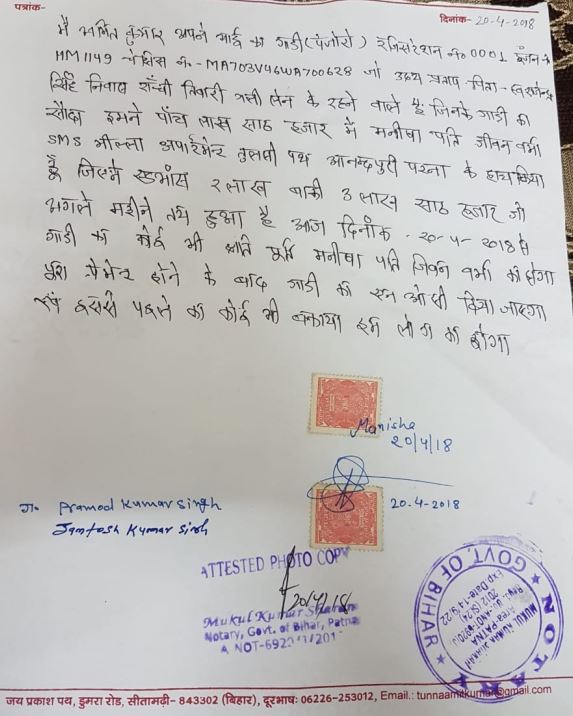 पत्रांक-
दिनांक- 20-4-2018
मैं अमित कुमार अपने भाई का गाड़ी (पंजोरो) रजिस्टरेशन नं० 0001 इंजन न०
HM1149 चेसिस न०- MA703V46WA700628 जो उदय प्रताप पिता-
सिंह निवास राँची तिवारी गली लेन के रहने वाले है जिनके गाड़ी का
सौदा हमने पाँच लाख साठ हजार में मनीषा पति जीवन वर्मा
SMS भील्ला अपार्टमेन्ट तुलसी पथ आनन्दपुरी पटना के हाथ किया
है जिसमे एडभांस 2 लाख बाकी 3 लाख साठ हजार जो
अगले महीने तय हुआ है आज दिनांक - 20-4-2018 से
गाड़ी का कोई भी क्षति पूर्ति मनीषा पति जिवन वर्मा की होगा
पूरा पेमेन्ट होने के बाद गाड़ी का एन ओ सी किया जाएगा
एवं इससे पहले का कोई भी बकाया हम लोग का होगा
Manisha
20/4/18
20-4-2018
ग० Pramod Kumar Singh
Santosh Kumar Singh
ATTESTED PHOTO COPY
20/4/18
Mukul Kumar Sharan
Notary, Govt. of Bihar, Patna
NOTARY
GOVT. OF BIHAR
MUKUL KUMAR SHARAN
PATNA
जय प्रकाश पथ, डुमरा रोड, सीतामढ़ी- 843302 (बिहार), दूरभाष: 06226-253012, Email.: tunnaamitkumar@gmail.com